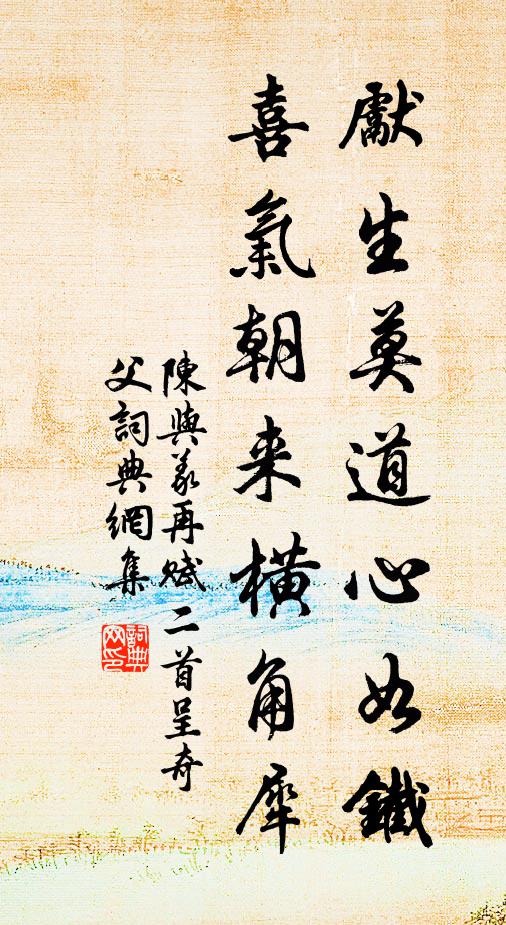 獻生莫道心如鐵
喜氣朝来橫角犀
陳與義再賦二首呈奇
父詞典網集
詞典網印